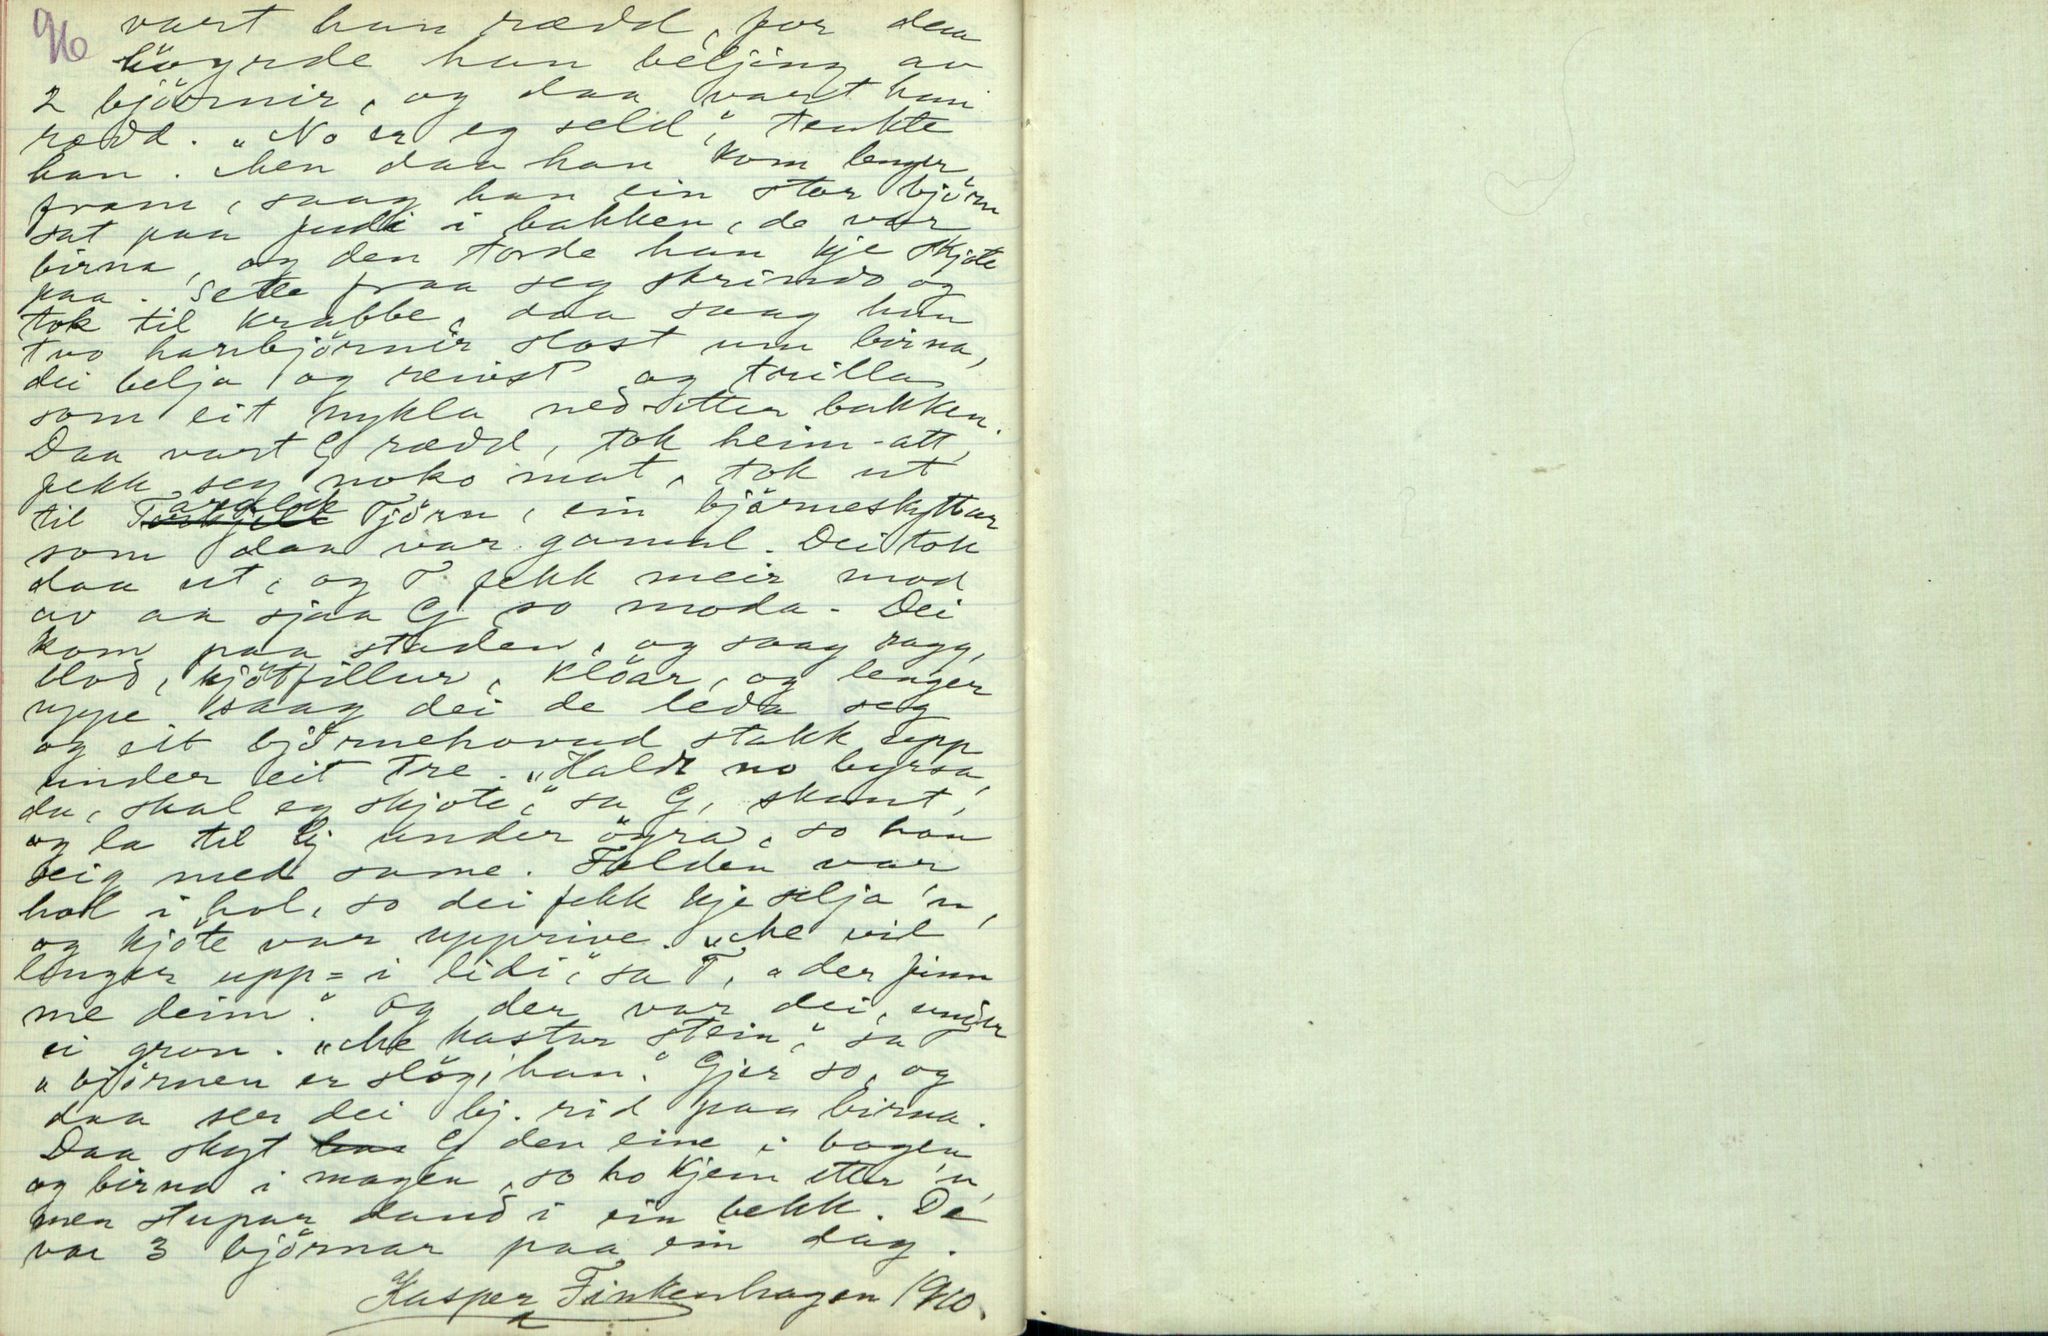 96 vart han rædd, for dem
höyrde han beljing av
2 björnir, og daa vart han
rædd. „No er eg seld", tenkte
han. Men daa han kom lenger
fram, saag han ein stor björn
sat paa judi i bakken, de var
birna, og den torde han kje skjote
paa. Sette fraa seg skrindo og
tok til krabbe, daa saag han
tvo hanbjörnir slost um birna,
dei belja og reivst og trilla
som eit nykla ned-etter bakken.
Daa vart G rædd, tok heim-att,
fekk seg noko mat, tok ut
til Taralik Tjörn, ein björneskyttar
som daa var gamal. Dei tok
daa ut, og T fekk meir mod
av aa sjaa G so moda. Dei
kom paa staden, og saag ragg,
blod, kjötfillur, klöar, og lenger
uppe saag dei de leda seg
og eit björnehovud stakk upp
under eit tre. „Haldt no byrsa,
du, skal eg skjote", sa G, skaut,
og la til bj under öyra, so han
seig med same. Felden var
hol i hol, so dei fekk kje selja 'n,
og kjöte var upprive. „Me vil
lenger upp= i lidi", sa T, „der finn
me deim." Og der var dei, under
ei gron. „Me kastar stein", sa T
„björnen er slög, han." Gjer so, og
daa ser dei bj. rid paa birna.
Daa skyt G den eine i bogen
og birna i magen, so ho kjem etter 'n,
men stupar daud i ein bekk. De
var 3 björnar paa ein dag.
Kasper Finkenhagen 1910.